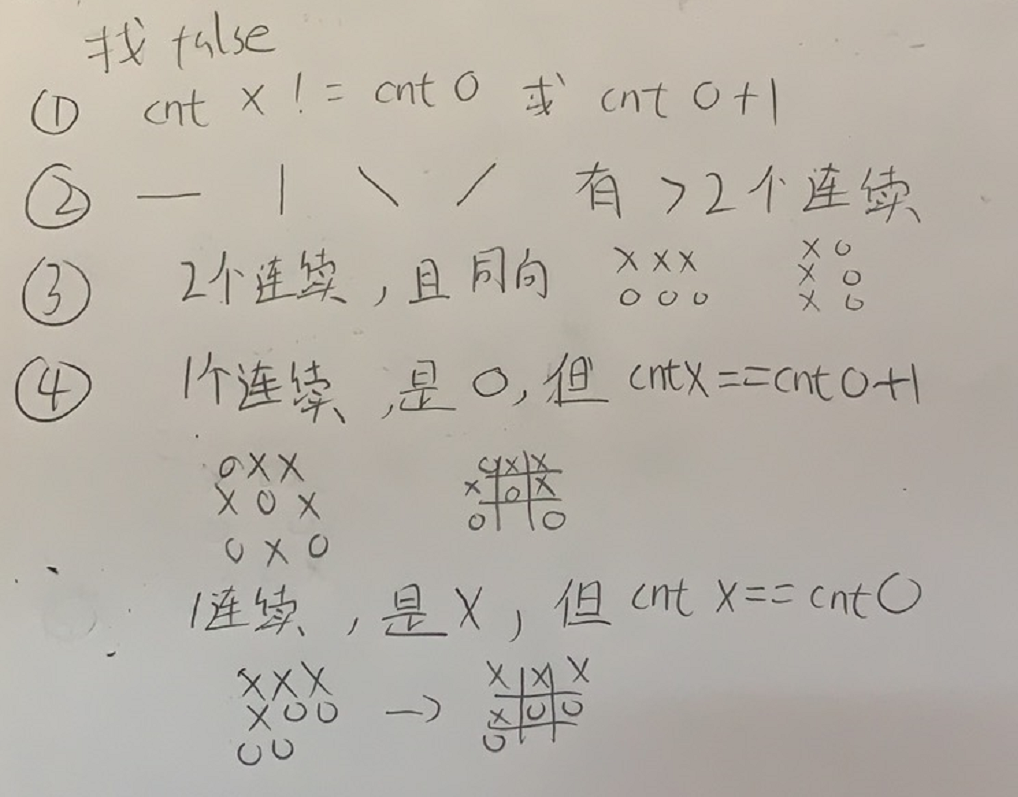 找 false
① cnt X != cnt O 或 cnt O+1
② — | \ / 有 >2个连续
③ 2个连续,且同向 XXX XO
OOO XO
XO
④ 1个连续,是O,但 cntX==cntO+1
OXX OXX
XOX XOX
OXO O O
1连续,是X,但 cnt X==cntO
XXX XXX
XOO → XOO
OO O